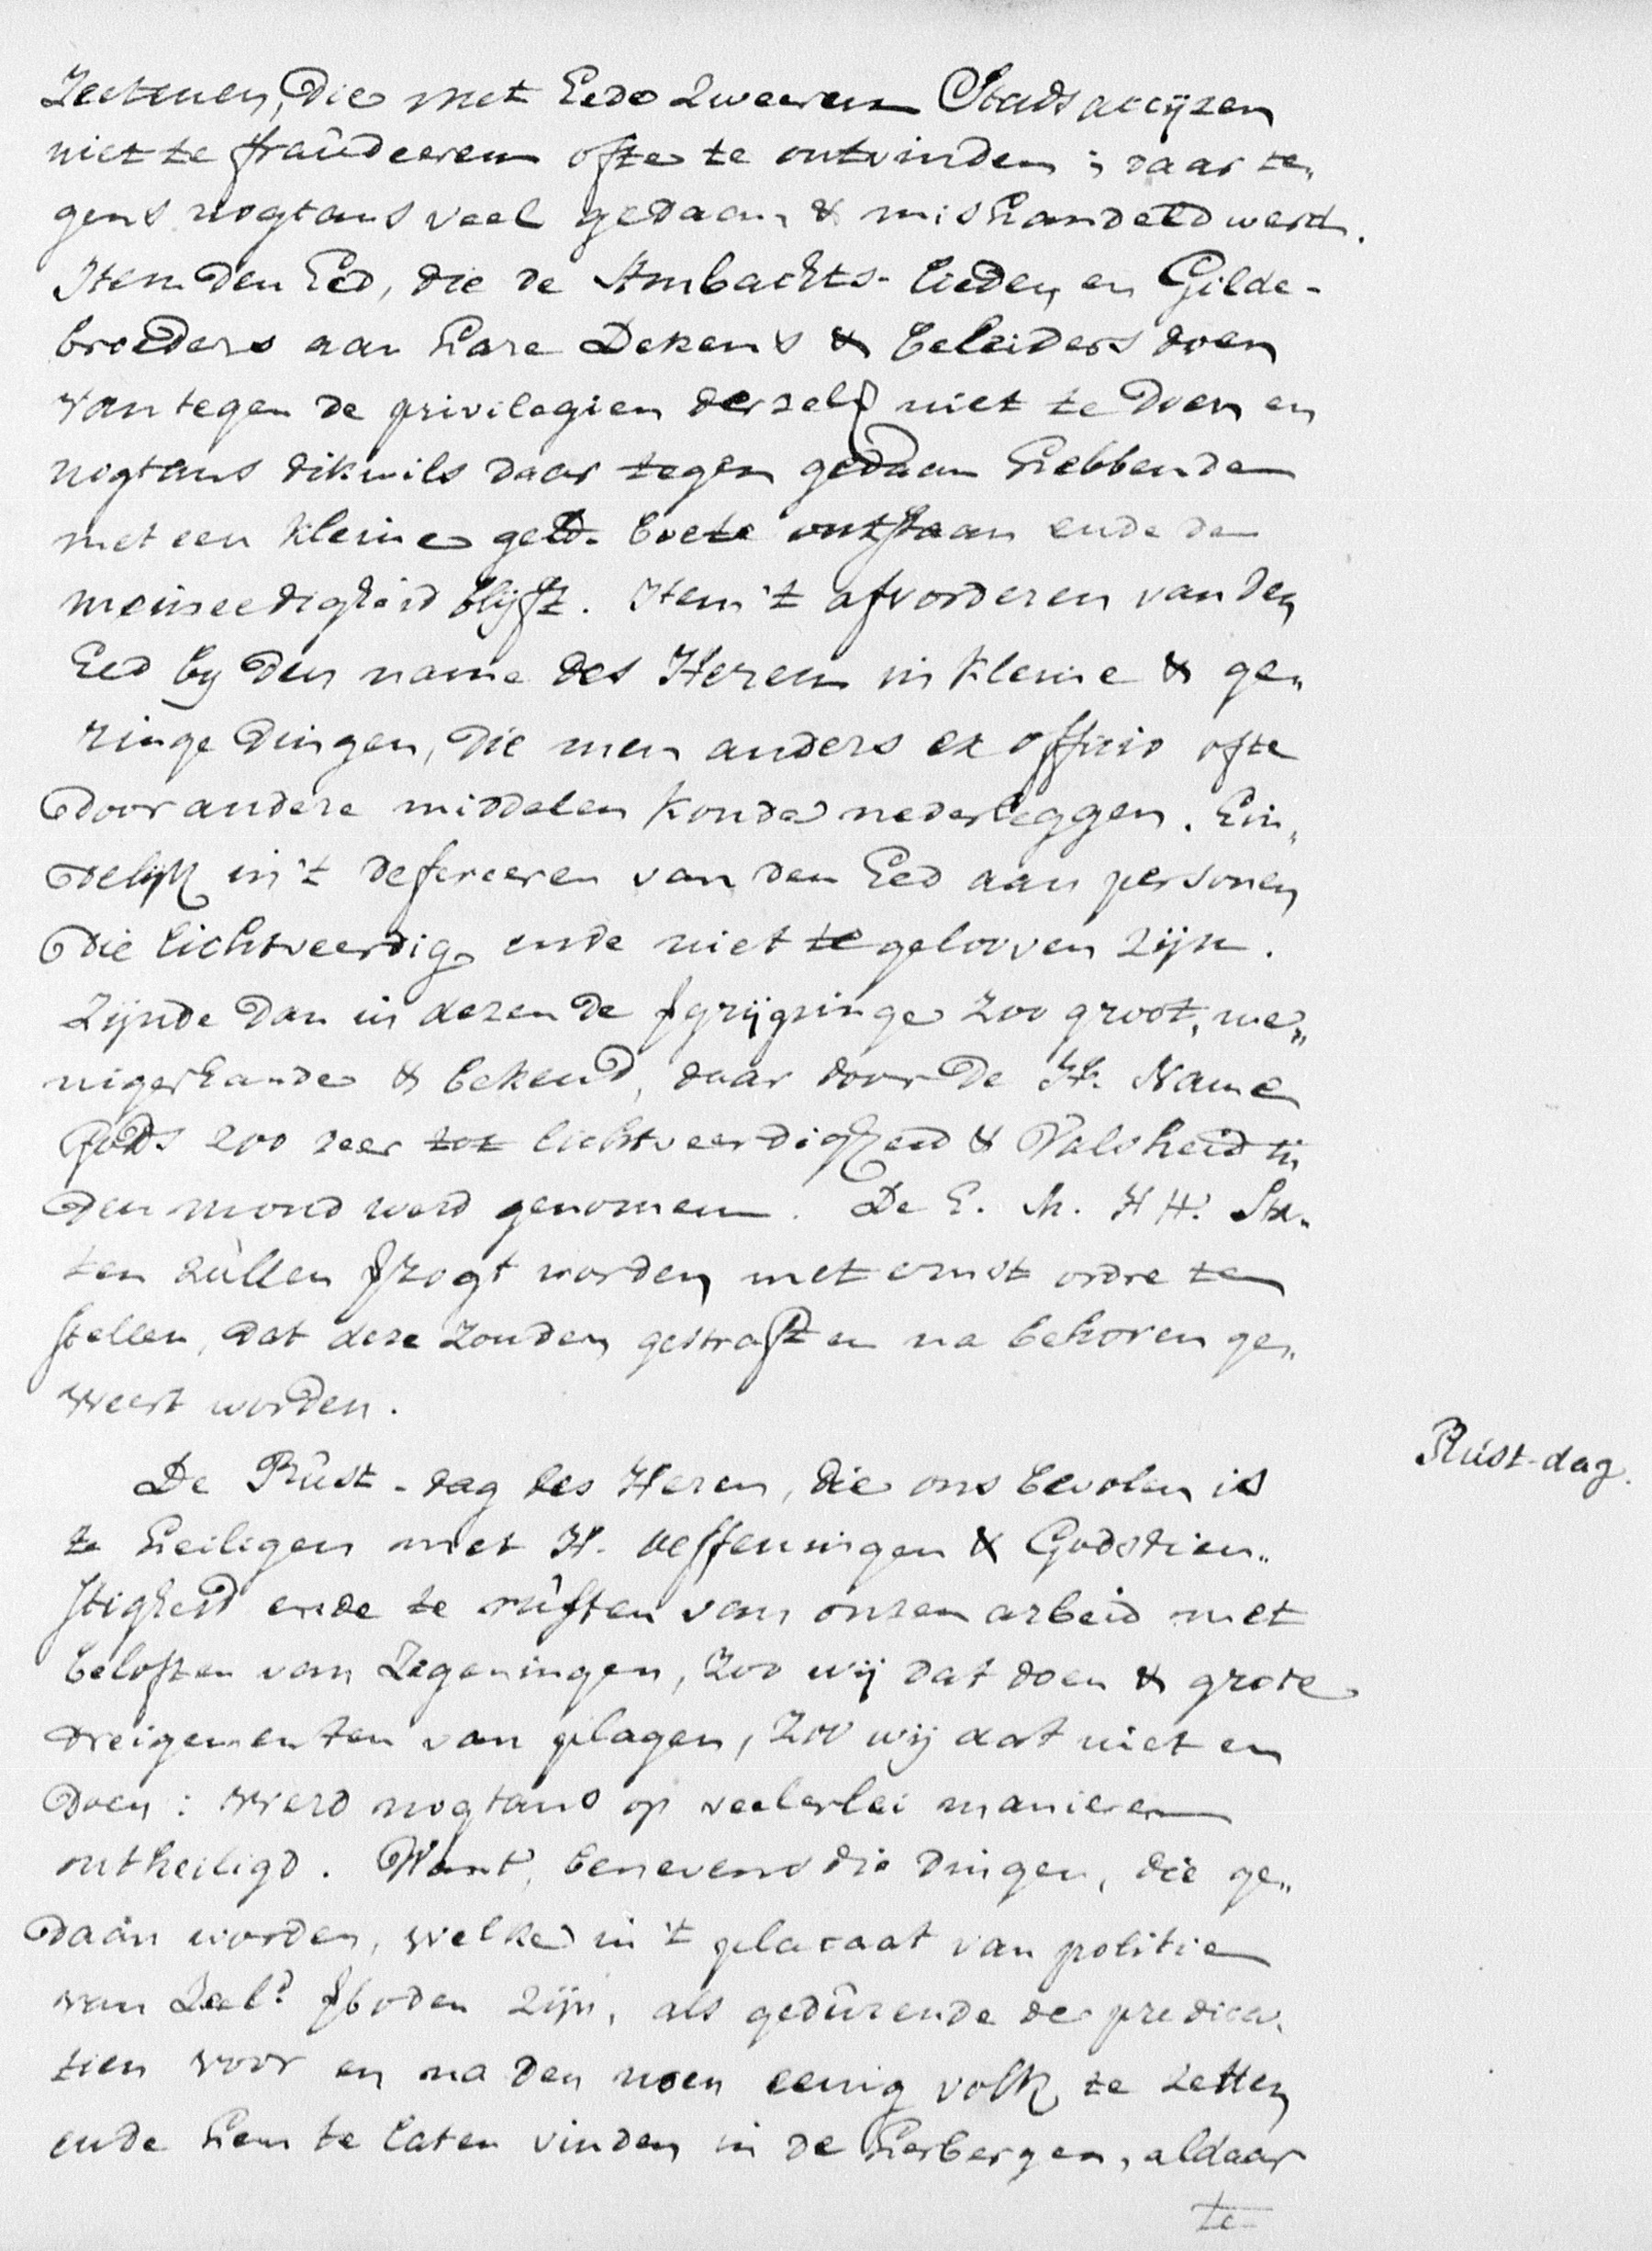 die met Eede zweeren Stads accijzen
niet te fraûdeeren ofte te ontvinden; daar te„
gens nogtans veel gedaan & mishandeld werd.
Item den Eed, die de Ambachts-lieden en Gilde-
broeders aan hare Dekens & beleiders doen
van tegen de privilegien derzelf niet te doen en
nogtans dikwils daar tegen gedaan hebbende
met een kleine geld-boete ontstaan ende de
meineedigheid blijft. Item 't afvorderen van den
Eed by den name des Heren in kleine & ge„
ringe dingen, die men anders ex officio ofte
door andere middelen konde nederleggen. Ein„
delijk in 't defereeren van den Eed aan personen
die lichtveerdig ende niet te gelooven zijn.
Zijnde dan in dezen de grijpinge zoo groot, me„
nigerhande & bekend, daar door de H. Name
Gods zoo zeer tot lichtveerdigheid & Valsheid in
den mond werd genomen. De E. M. HH. Sta„
ten zùllen zogt worden met ernst ordre te
stellen, dat deze zonden gestraft en na behoren ge„
weert worden.
Rùst-dag.
De Rûst-dag des Heren, die ons bevolen is
te heiligen met H. oeffeningen & Godsdien„
stigheid ende te rûsten van onzen arbeid met
beloften van Zegeningen, zoo wij dat doen & grote
dreigementen van plagen, zoo wij dat niet en
doen: werd nogtans op veelerlei manieren
ontheiligd. Want, benevens die dingen, die ge„
daan worden, welke in 't placaat van politie
van Zeel.d boden zijn, als gedûrende de predica„
tien voor en na den noen eenig volk te zetten
ende hem te laten vinden in de herbergen, aldaar
te